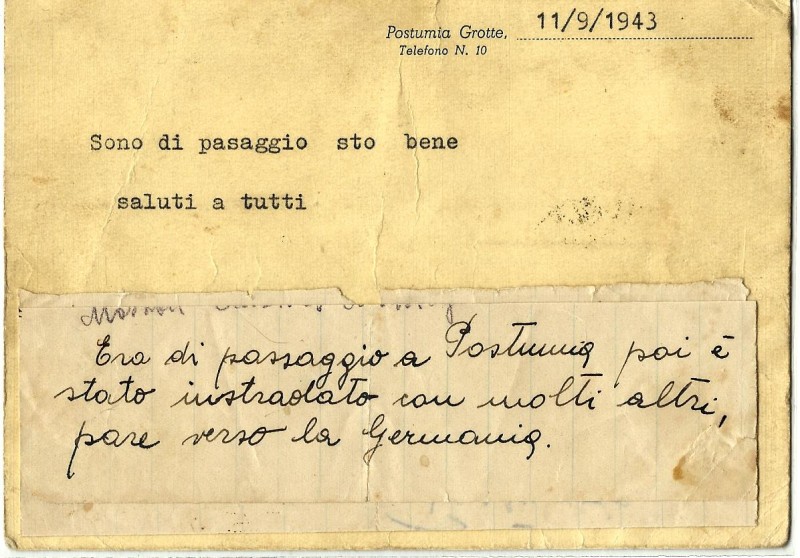 Postumia Grotte, 11/9/1943
Telefono N. 10
Sono di pasaggio sto bene
saluti a tutti
Era di passaggio a Postumia poi è
stato instradato con molti altri,
pare verso la Germania.